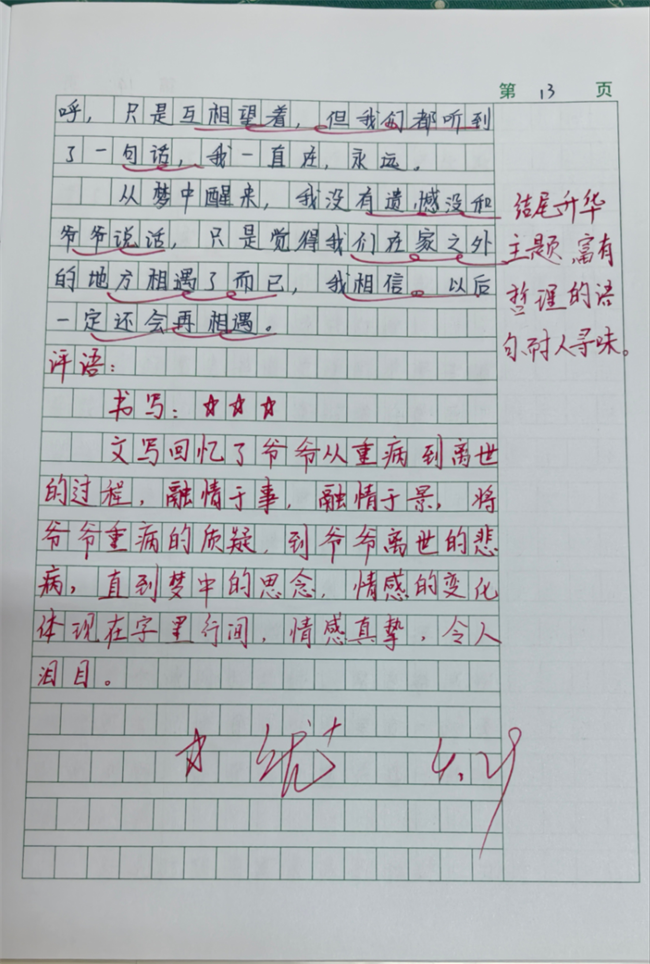 第 13 页
呼，只是互相望着，但我们都听到
了一句话，我一直在，永远。
从梦中醒来，我没有遗憾没和
爷爷说话，只是觉得我们在家之外
的地方相遇了而已，我相信。以后
一定还会再相遇。
结尾升华
主题，富有
哲理的语
句耐人寻味。
评语：
书写：☆☆☆
文写回忆了爷爷从重病到离世
的过程，融情于事，融情于景，将
爷爷重病的质疑，到爷爷离世的悲
病，直到梦中的思念，情感的变化
体现在字里行间，情感真挚，令人
泪目。
☆ 优+ 4.29